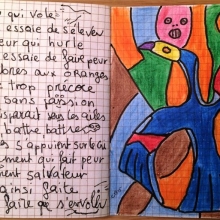 qui vole
essaie de s'élever
eur qui hurle
essaie de faire peur
bres aux oranges
trop précoce
sans passion
disparaît sous les ailes
battre battre
s s'appuient sur le ci
ment qui fait peur
ment salvateur
ainsi faite
faire que s'envoler